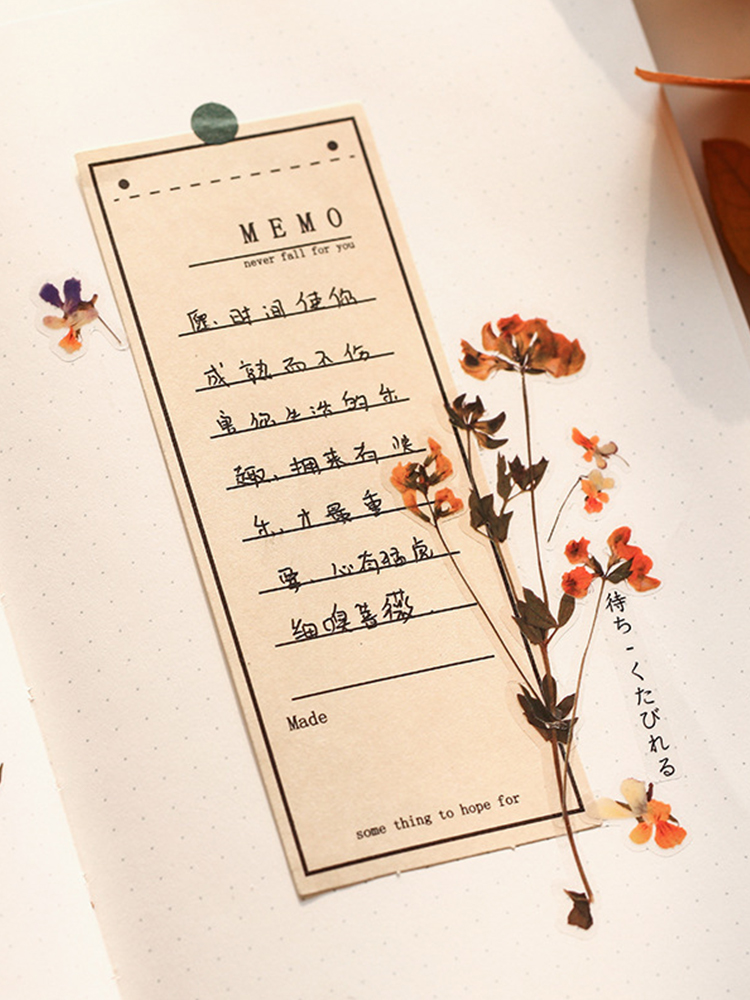 MEMO
never fall for you
愿.时间使你
成熟而不伤
害你生活的乐
趣.拥来有快
乐.才最重
要.心有猛虎
细嗅蔷薇.
Made
some thing to hope for
待ち-くたびれる